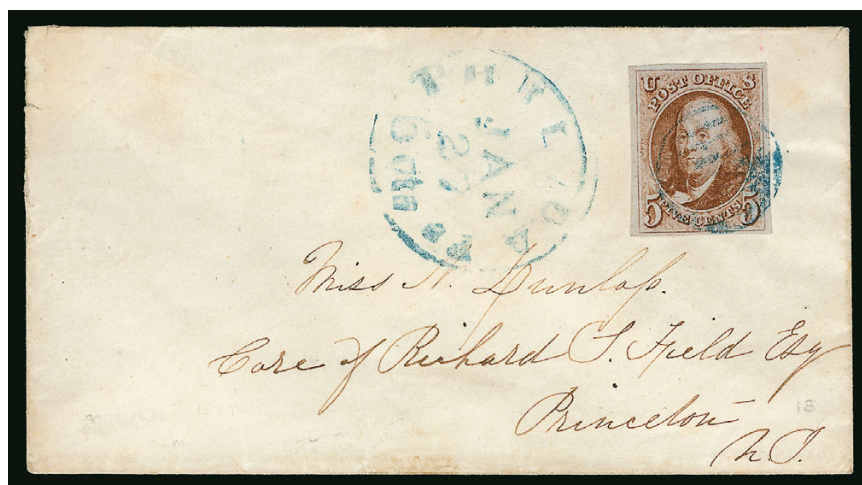 PHILADA Pa
JAN
27
5cts
U S
POST OFFICE
5 FIVE CENTS 5
Miss N. Dunlap.
Care of Richard S. Field Esq
Princeton
N J.
81